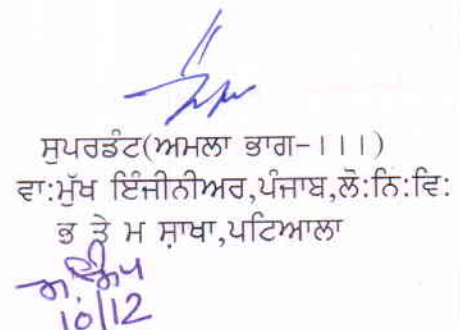 ਸੁਪਰਡੰਟ(ਅਮਲਾ ਭਾਗ-।।।)
ਵਾ:ਮੁੱਖ ਇੰਜੀਨੀਅਰ,ਪੰਜਾਬ,ਲੋ:ਨਿ:ਵਿ:
ਭ ਤੇ ਮ ਸ਼ਾਖਾ,ਪਟਿਆਲਾ
10/12